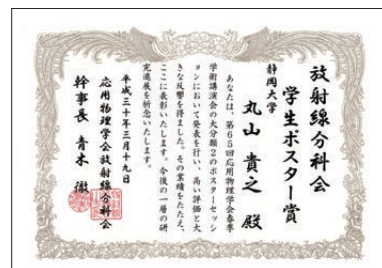 放射線分科会
学生ポスター賞
静岡大学
丸山貴之 殿
あなたは、第65回応用物理学会春季
学術講演会の大分類2のポスターセッシ
ョンにおいて発表を行い、高い評価と大
きな反響を得ました。その業績をたたえ、
ここに表彰いたします。今後の一層の研
究進展を祈念いたします。
平成三十年三月十九日
応用物理学会放射線分科会
幹事長 青木 徹